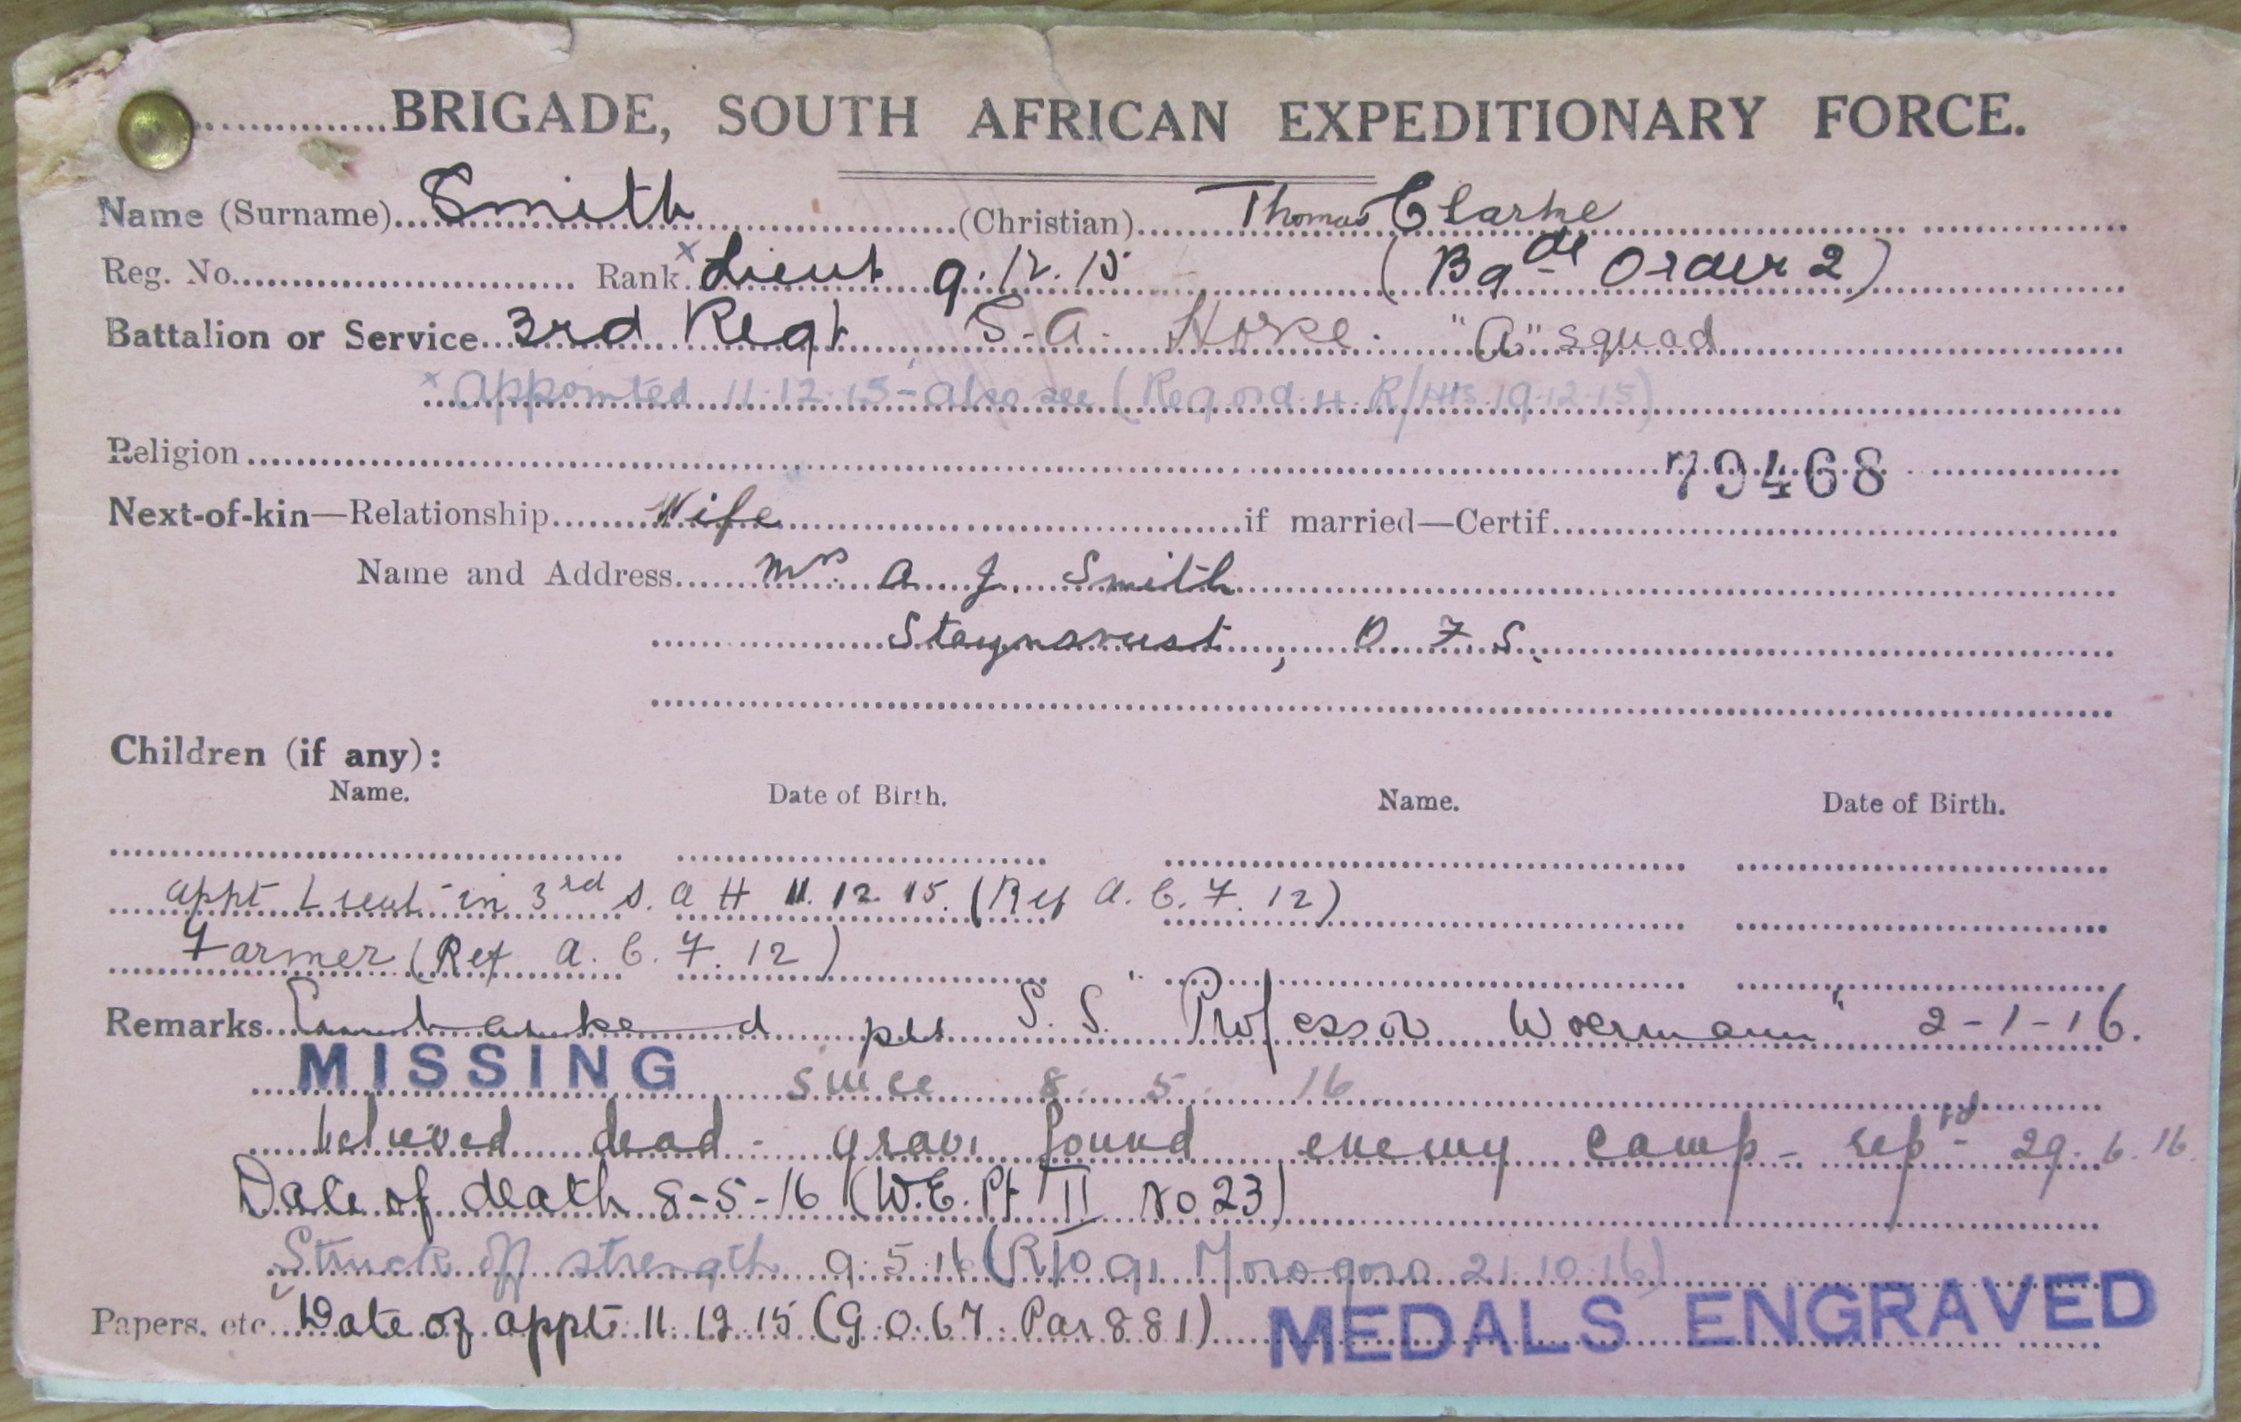 BRIGADE, SOUTH AFRICAN EXPEDITIONARY FORCE.
Name (Surname) Smith (Christian) Thomas Clarke
Reg. No. Rank x Lieut 9.12.15 (Bgde Order 2)
Battalion or Service 3rd Regt S.A. Horse. "A" Squad
x Appointed 11.12.15 - also see (Reg ord. 4. R/Hts. 19.12.15)
Religion
79468
Next-of-kin—Relationship Wife if married—Certif.
Name and Address Mrs. A. J. Smith
Steynsrust, O.F.S.
Children (if any):
Name. Date of Birth. Name. Date of Birth.
appt Lieut in 3rd S.A H 11.12.15. (Ref A.C.F. 12)
Farmer (Ref A.C.F. 12)
Remarks Embarked per S.S. "Professor Woermann" 2-1-16.
MISSING since 8.5.16
believed dead - grave found enemy camp - reptd 29.6.16.
Date of death 8-5-16 (W.E. Pt II No 23)
Struck off strength 9.5.16 (R/O 91 Morogoro 21.10.16)
Papers, etc. Date of appt. 11.12.15 (G.O.67. Par 881)
MEDALS ENGRAVED